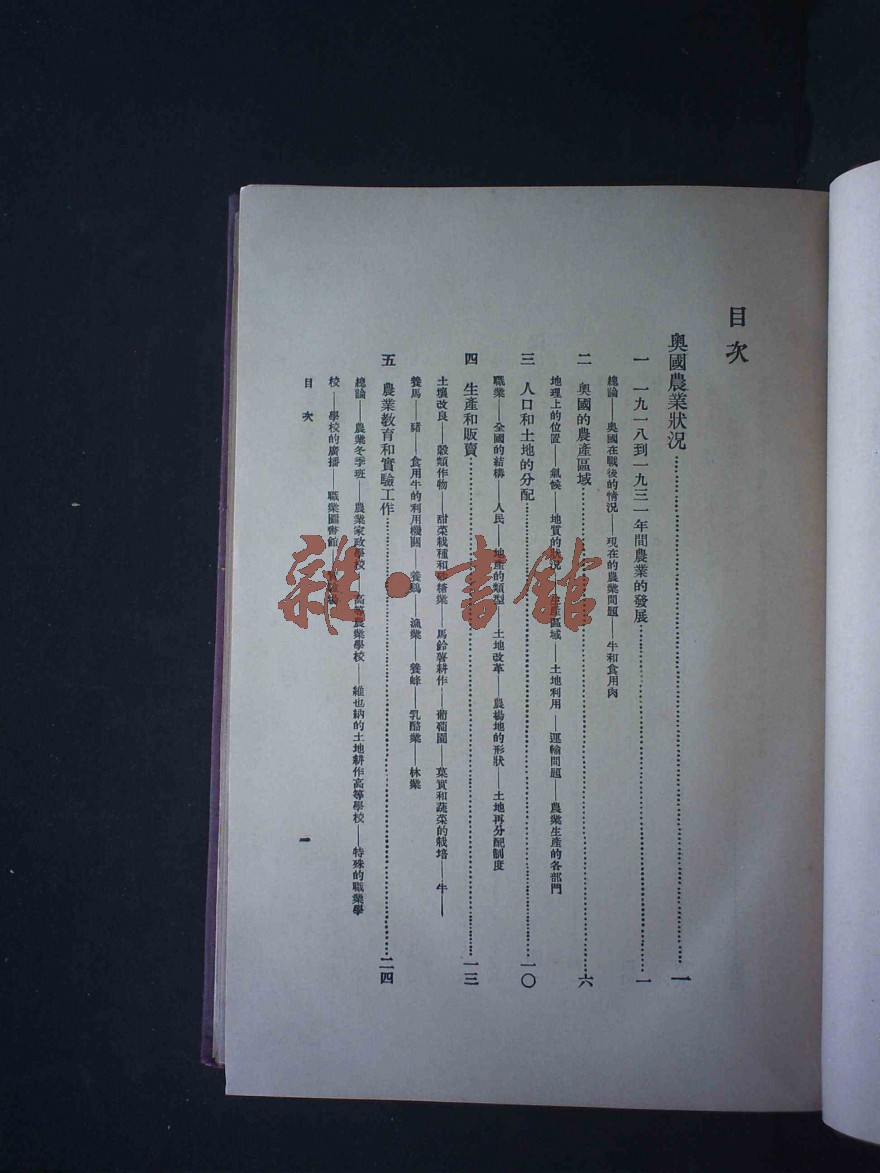 目次
奧國農業狀況……一
一 一九一八到一九三一年間農業的發展……一
總論——奧國在戰後的情況——現在的農業問題——牛和食用肉
二 奧國的農產區域……六
地理上的位置——氣候——地質的狀況——生產區域——土地利用——運輸問題——農業生產的各部門
三 人口和土地的分配……一〇
職業——全國的結構——人民——地產的類型——土地改革——農場地的形狀——土地再分配制度
四 生產和販賣……一三
土壤改良——穀類作物——甜菜栽種和製糖業——馬鈴薯耕作——葡萄園——菓實和蔬菜的栽培——牛——
養馬——豬——食用牛的利用機關——養鷄——漁業——養蜂——乳酪業——林業
五 農業教育和實驗工作……二四
總論——農業冬季班——農業家政學校——高等農業學校——維也納的土地耕作高等學校——特殊的職業學
校——學校的廣播——職業圖書館——
目次
一
雜·書館